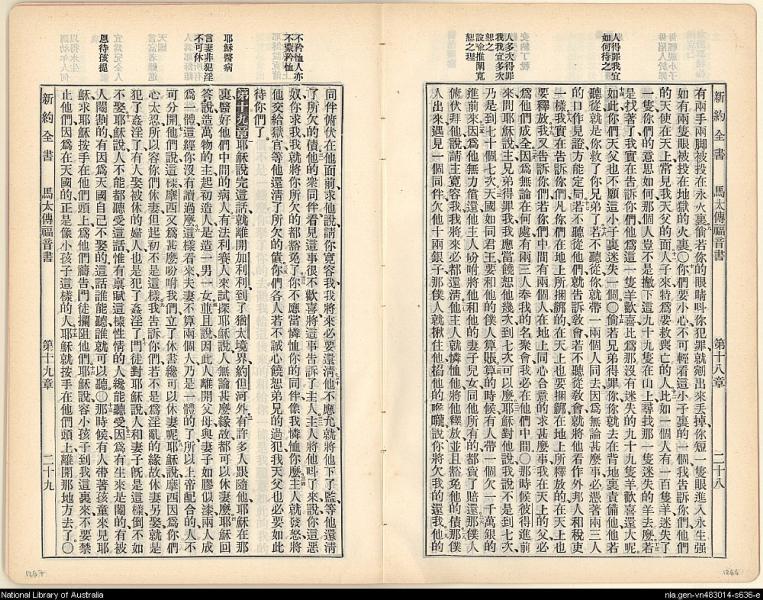 人得罪我宜
如何待之
人多次得罪
我我宜多次
恕之
設喻推闡寬
恕之理
新約全書　馬太傳福音書　第十八章　二十八
有兩手兩脚被投在永火裏倘若你的眼睛叫你犯罪就剜出來丟掉你短一隻眼進入永生強
如有兩隻眼被投在地獄的火裏〇你們要小心不可輕看這小子裏的一個我告訴你們他們
的天使在天上常見我天父的面人子來特爲要救喪亡的人此如一個人有一百隻羊迷失了
一隻你們的意思如何那個人豈不是撇下這九十九隻在山上尋找那一隻迷失的羊去麽若
是找著了我實在告訴你們他爲這一隻羊歡喜比爲那沒有迷失的九十九隻羊歡喜還大呢
如此你們天父也不願這小子裏迷失一個〇倘若兄弟得罪你你就去在背地裏責備他他若
聽從就是你救了你兄弟了若不聽從你就帶一兩個人同去因爲無論甚麽事必憑著兩三人
的口作見證方能定局若不聽從他們就告訴教會若不聽從教會就將他看作外邦人和稅吏
一樣我實在告訴你們凡你們在地上所捆綁的在天上也要捆綁在地上所釋放的在天上也
要釋放我又告訴你們若你們中間有兩個人在地上同心合意的求甚麽事我在天上的父必
爲他們成全因爲無論在何處有兩三人奉我的名聚會我必在他們中間〇那時候彼得進前
來問耶穌說主兄弟得罪我我應當饒恕他幾次到七次可以麽耶穌對他說我說不是到七次
乃是到七十個七次天國如同君王要和他的僕人算賬算的時候有人帶一個欠一千萬銀的
進前來因爲他無力償還他主人吩咐將他和他的妻子兒女同他所有的都賣了賠還那僕人
俯伏拜他說請主寬容我我將來必都還淸他主人就憐恤他將他釋放並且豁免他的債那僕人
出來遇見一個同伴欠他十兩銀子那僕人就揪住他搯他的喉嚨說你將欠我的還我他的
不矜恤人亦
不蒙矜恤
耶穌醫病
言妻非犯淫
不可休
恩待孩提
新約全書　馬太傳福音書　第十九章　二十九
同伴俯伏在他面前求他說請你寬容我我將來必要還淸他不應允就將他下了監等他還淸
了所欠的債他的衆同伴看見這事很不歡喜將這事告訴了主人主人將他叫了來說你這惡
奴你求我我就將你所欠的都豁免了你不應當憐恤你的同伴像我憐恤你麽主人就發怒將
他交給獄官等他還淸了所欠的債你們各人若不誠心饒恕弟兄的過犯我天父也必要如此
待你們了
第十九章　耶穌說完這話就離開加利利到了猶太境界約但河外有許多人跟隨他耶穌在那
裏醫好他們中間的病人有法利賽人來試探耶穌說人無論甚麽緣故都可以休妻麽耶穌回
答說造萬物的主起初造人是造一男一女並且說因此人離開父母與妻子如膠似漆兩人成
爲一體這經你沒有讀過麽這樣看來夫妻不算兩個人乃是一體的了所以上帝配合的人不
可分開他們說這樣摩西又爲甚麽吩咐我們立了休書纔可以休妻呢耶穌說摩西因爲你們
心太忍所以容你們休妻但起初不是這樣我告訴你們若不是爲淫亂的緣故休妻另娶就是
犯了姦淫了有人娶被休的婦人也是犯了姦淫了門徒對耶穌說人和妻子旣是這樣倒不如
不娶耶穌說人不能都聽受這話惟有稟賦這樣性情的人纔能聽受因爲有生來是閹的有被
人閹割的有因爲天國自己不娶的這話誰能聽誰就可以聽〇那時候有人帶著孩童來見耶
穌求耶穌按手在他們頭上爲他們禱告門徒攔阻他們耶穌說容小孩子到我這裏來不要禁
止他們因爲在天國的正是像小孩子這樣的人耶穌就按手在他們頭上離開那地方去了〇
National Library of Australia
nla.gen-vn483014-s636-e